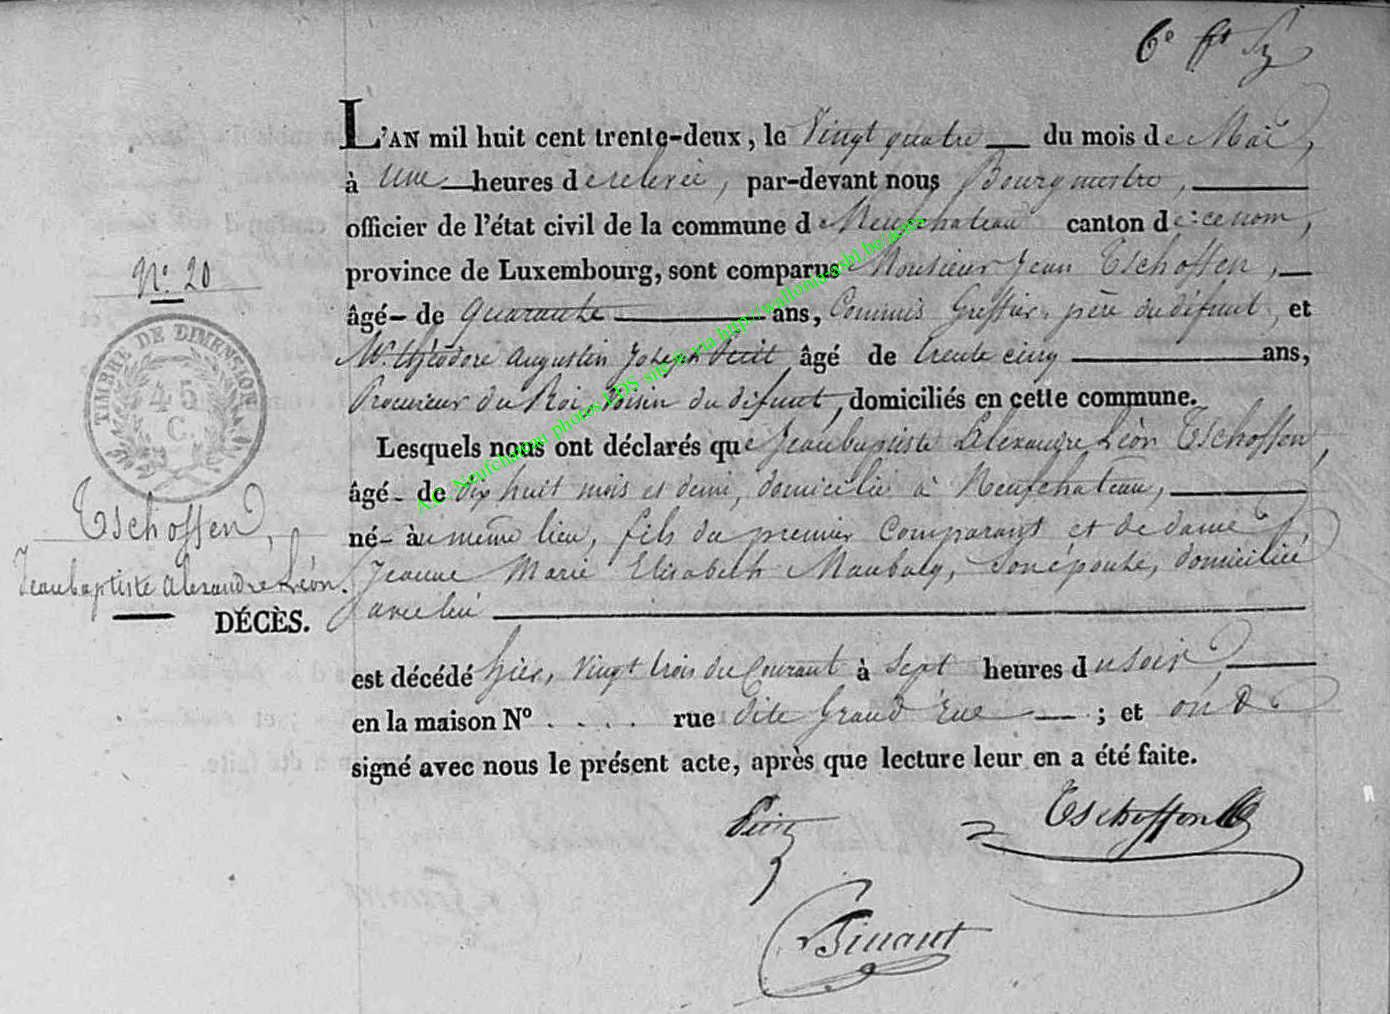 6e ft
L'AN mil huit cent trente-deux, le Vingt quatre du mois de Mai,
à Une heures de relevée, par-devant nous Bourgmestre,
officier de l'état civil de la commune de Neufchateau canton de ce nom,
province de Luxembourg, sont comparus Monsieur Jean Tschoffen,
N.º 20
âgé de quarante ans, Commis Greffier, père du défunt, et
Mr. Théodore Augustin Joseph âgé de trente cinq ans,
TIMBRE DE DIMENSION
45 C.
Procureur du Roi, Voisin du défunt, domiciliés en cette commune.
Lesquels nous ont déclarés que Jeanbaptiste Alexandre Léon Tschoffen,
âgé de dix huit mois et demi, domicilié à Neufchateau,
Tschoffen,
né au même lieu, fils du premier Comparant et de dame
Jeanbaptiste Alexandre Léon.
Jeanne Marie Elisabeth, son épouse, domiciliée
DÉCÈS.
avec lui
est décédé hier, vingt trois du Courant à Sept heures du soir,
en la maison Nº . . . . rue dite Grand Rue ; et ont
signé avec nous le présent acte, après que lecture leur en a été faite.
Tschoffen
Binaut